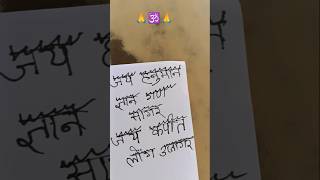 🙏🕉️🙏
जय हनुमान
ज्ञान गुण
सागर
जय कपीत
लोग उजागर